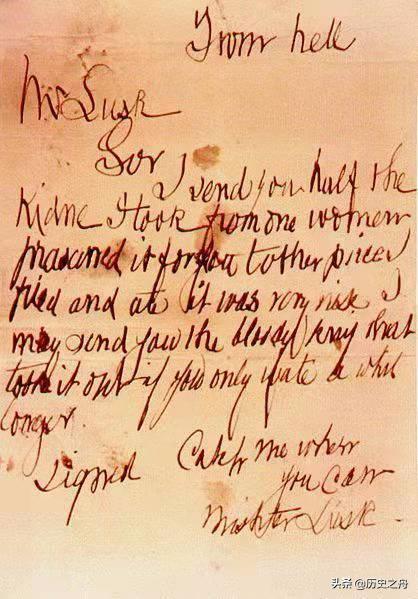 From hell
Mr Lusk
Sor
I send you half the
Kidne I took from one women
prasarved it for you tother piece I
fried and ate it was very nise I
may send you the bloody knif that
took it out if you only wate a whil
longer.
signed
Catch me when
you Can
Mishter Lusk.
头条 @历史之舟